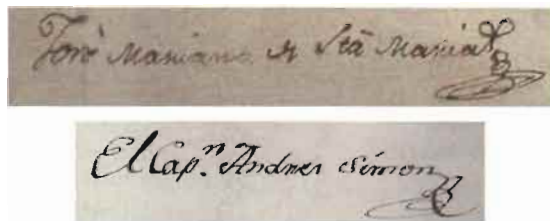 Toro Mariano de Sta Maria
El Cap.n Andres Simon